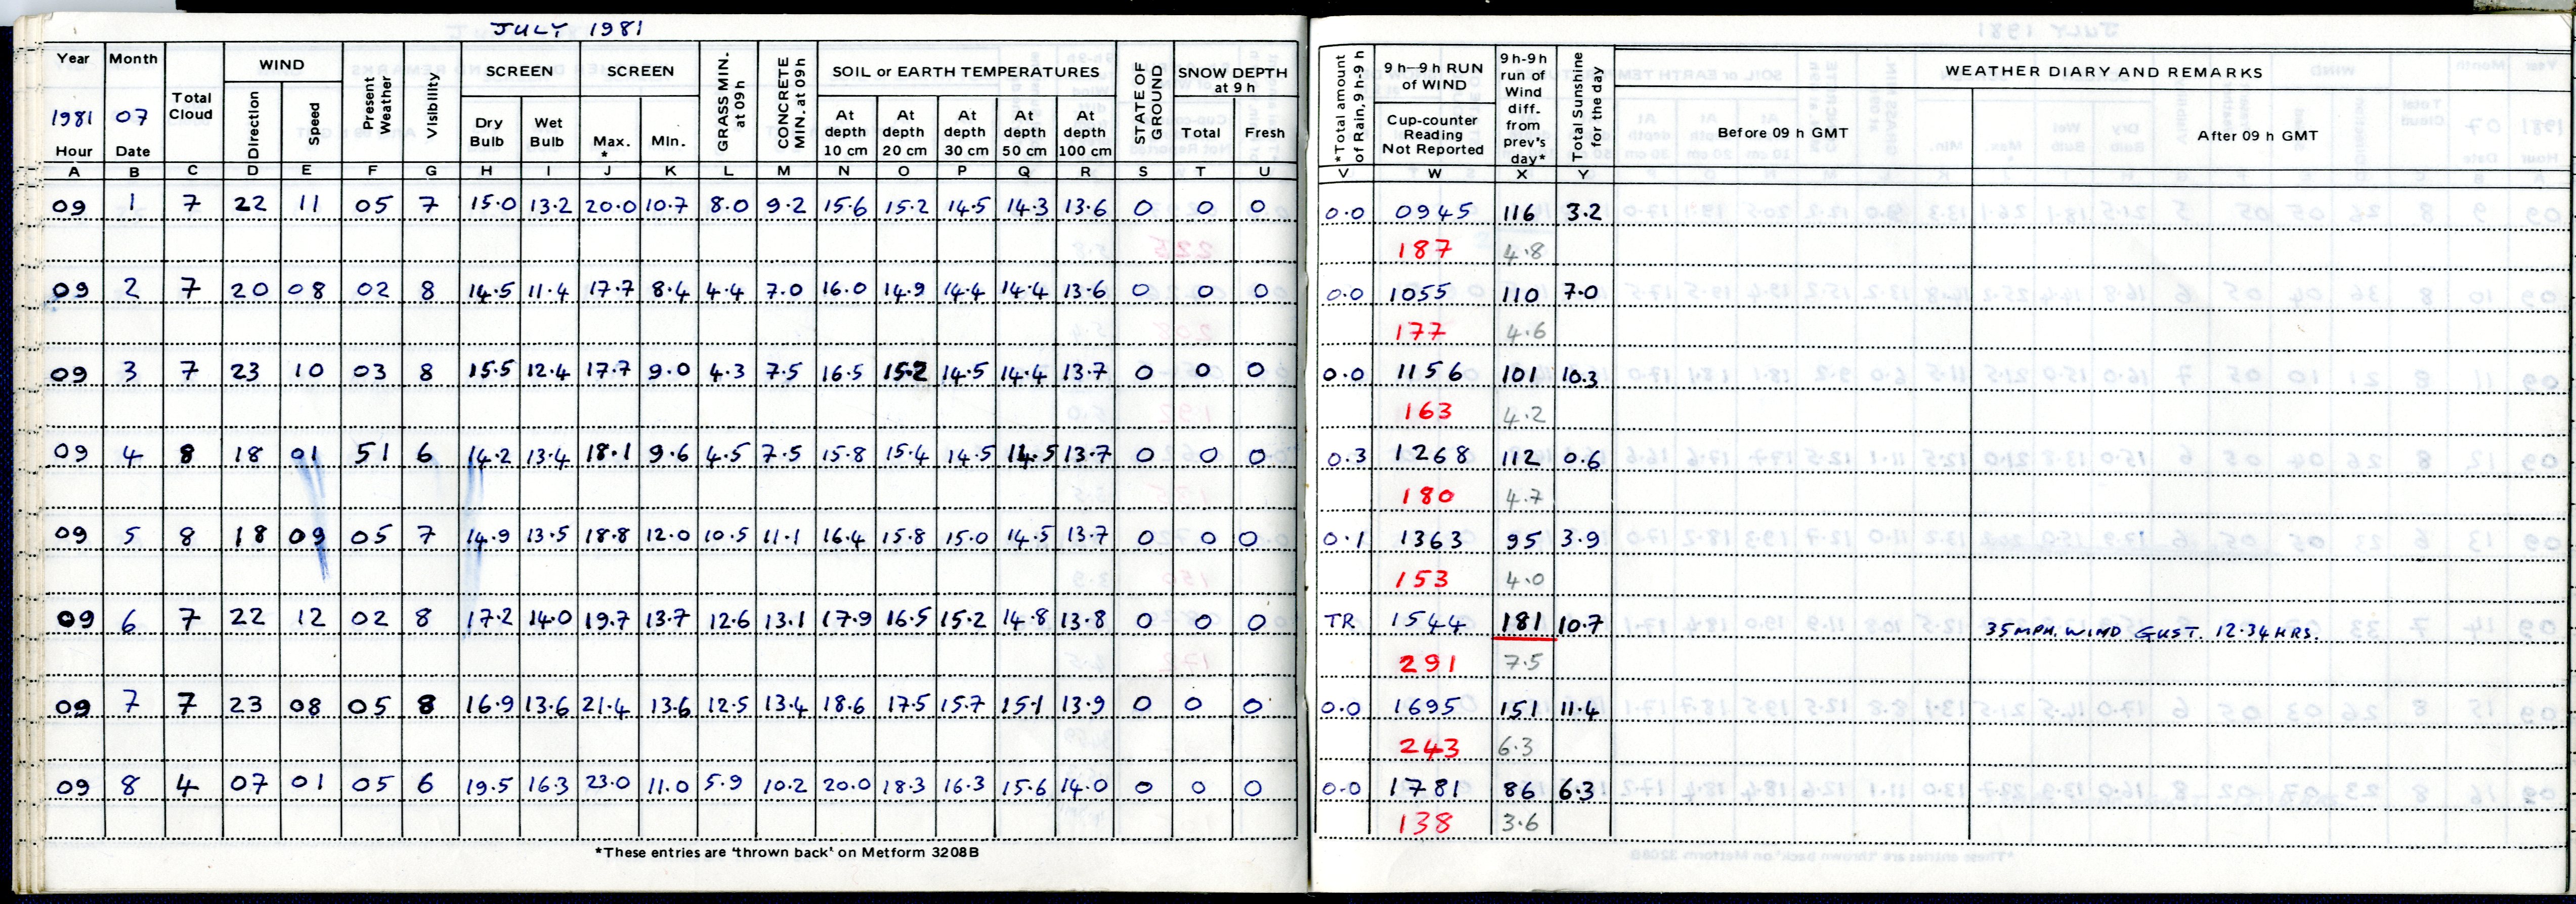 JULY 1981
Year Month Total Cloud WIND Present Weather Visibility SCREEN SCREEN GRASS MIN. at 09h CONCRETE MIN. at 09h SOIL or EARTH TEMPERATURES STATE OF GROUND SNOW DEPTH at 9 h *Total amount of Rain, 9h-9h 9h—9h RUN of WIND 9h-9h run of Wind diff. from prev's day* Total Sunshine for the day WEATHER DIARY AND REMARKS
1981 07 Direction Speed Dry Bulb Wet Bulb Max. * Min. At depth 10 cm At depth 20 cm At depth 30 cm At depth 50 cm At depth 100 cm Total Fresh Cup-counter Reading Not Reported Before 09 h GMT After 09 h GMT
Hour Date
A B C D E F G H I J K L M N O P Q R S T U V W X Y
09 1 7 22 11 05 7 15.0 13.2 20.0 10.7 8.0 9.2 15.6 15.2 14.5 14.3 13.6 0 0 0 0.0 0945 116 3.2
187 4.8
09 2 7 20 08 02 8 14.5 11.4 17.7 8.4 4.4 7.0 16.0 14.9 14.4 14.4 13.6 0 0 0 0.0 1055 110 7.0
177 4.6
09 3 7 23 10 03 8 15.5 12.4 17.7 9.0 4.3 7.5 16.5 15.2 14.5 14.4 13.7 0 0 0 0.0 1156 101 10.3
163 4.2
09 4 8 18 01 51 6 14.2 13.4 18.1 9.6 4.5 7.5 15.8 15.4 14.5 14.5 13.7 0 0 0 0.3 1268 112 0.6
180 4.7
09 5 8 18 09 05 7 14.9 13.5 18.8 12.0 10.5 11.1 16.4 15.8 15.0 14.5 13.7 0 0 0 0.1 1363 95 3.9
153 4.0
09 6 7 22 12 02 8 17.2 14.0 19.7 13.7 12.6 13.1 17.9 16.5 15.2 14.8 13.8 0 0 0 TR 1544 181 10.7 35 MPH. WIND GUST. 12.34 HRS.
291 7.5
09 7 7 23 08 05 8 16.9 13.6 21.4 13.6 12.5 13.4 18.6 17.5 15.7 15.1 13.9 0 0 0 0.0 1695 151 11.4
243 6.3
09 8 4 07 01 05 6 19.5 16.3 23.0 11.0 5.9 10.2 20.0 18.3 16.3 15.6 14.0 0 0 0 0.0 1781 86 6.3
138 3.6
*These entries are 'thrown back' on Metform 3208B